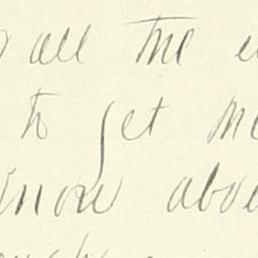 all the
to get me
know abou